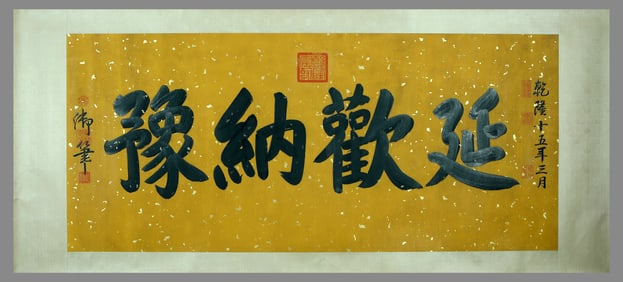 乾隆十五年三月
延歡納豫
御筆